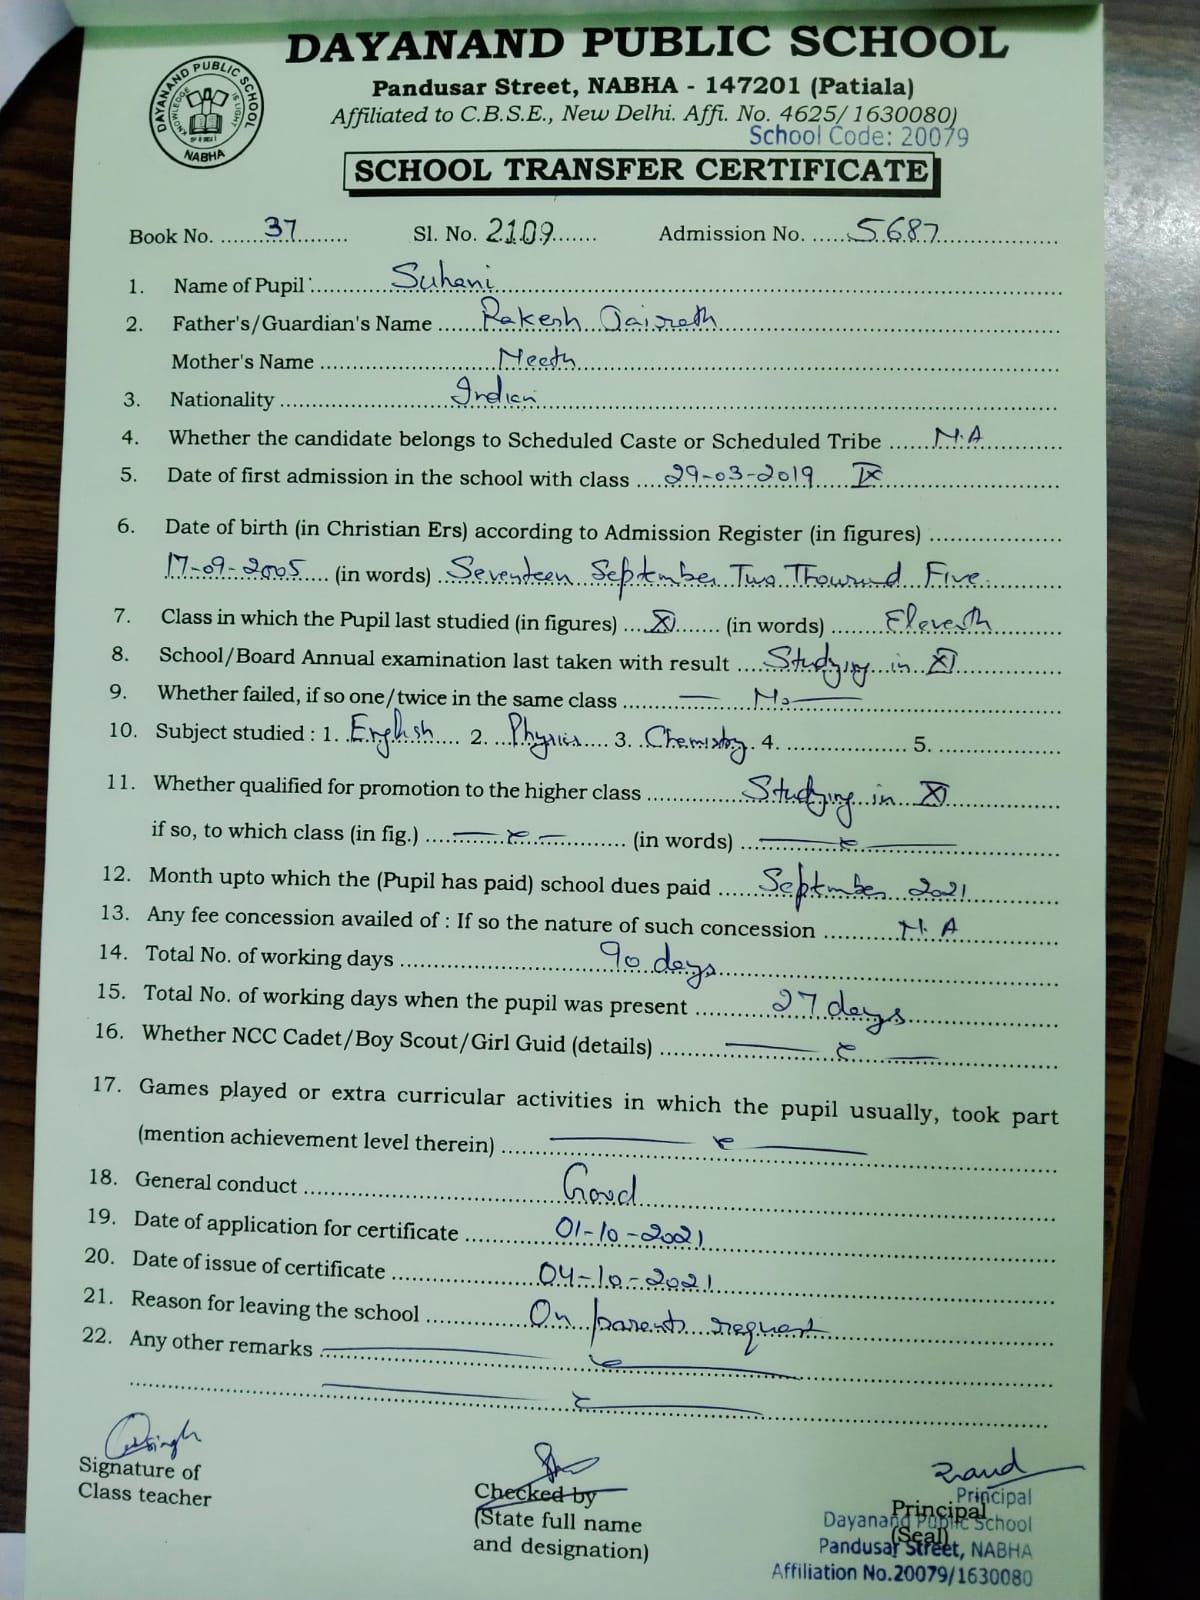 DAYANAND PUBLIC SCHOOL
Pandusar Street, NABHA - 147201 (Patiala)
Affiliated to C.B.S.E., New Delhi. Affi. No. 4625/ 1630080)
School Code: 20079
DAYANAND PUBLIC SCHOOL
KNOWLEDGE IS LIGHT
NABHA
SCHOOL TRANSFER CERTIFICATE
Book No. 37 Sl. No. 2109 Admission No. 5687
1. Name of Pupil : Suhani
2. Father's/Guardian's Name Rakesh Gaireth
Mother's Name Neeth
3. Nationality Indian
4. Whether the candidate belongs to Scheduled Caste or Scheduled Tribe N.A
5. Date of first admission in the school with class 29-03-2019 IX
6. Date of birth (in Christian Ers) according to Admission Register (in figures)
17-09-2005 (in words) Seventeen September Two Thousand Five
7. Class in which the Pupil last studied (in figures) XI (in words) Eleventh
8. School/Board Annual examination last taken with result Studying in XI
9. Whether failed, if so one/twice in the same class No
10. Subject studied : 1. English 2. Physics 3. Chemistry 4. 5.
11. Whether qualified for promotion to the higher class Studying in XI
if so, to which class (in fig.) (in words)
12. Month upto which the (Pupil has paid) school dues paid September 2021
13. Any fee concession availed of : If so the nature of such concession N.A
14. Total No. of working days 90 days
15. Total No. of working days when the pupil was present 27 days
16. Whether NCC Cadet/Boy Scout/Girl Guid (details)
17. Games played or extra curricular activities in which the pupil usually, took part
(mention achievement level therein)
18. General conduct Good
19. Date of application for certificate 01-10-2021
20. Date of issue of certificate 04-10-2021
21. Reason for leaving the school On parents request
22. Any other remarks
Signature of
Class teacher
Checked by
(State full name
and designation)
Principal
(Seal)
Principal
Dayanand Public School
Pandusar Street, NABHA
Affiliation No.20079/1630080